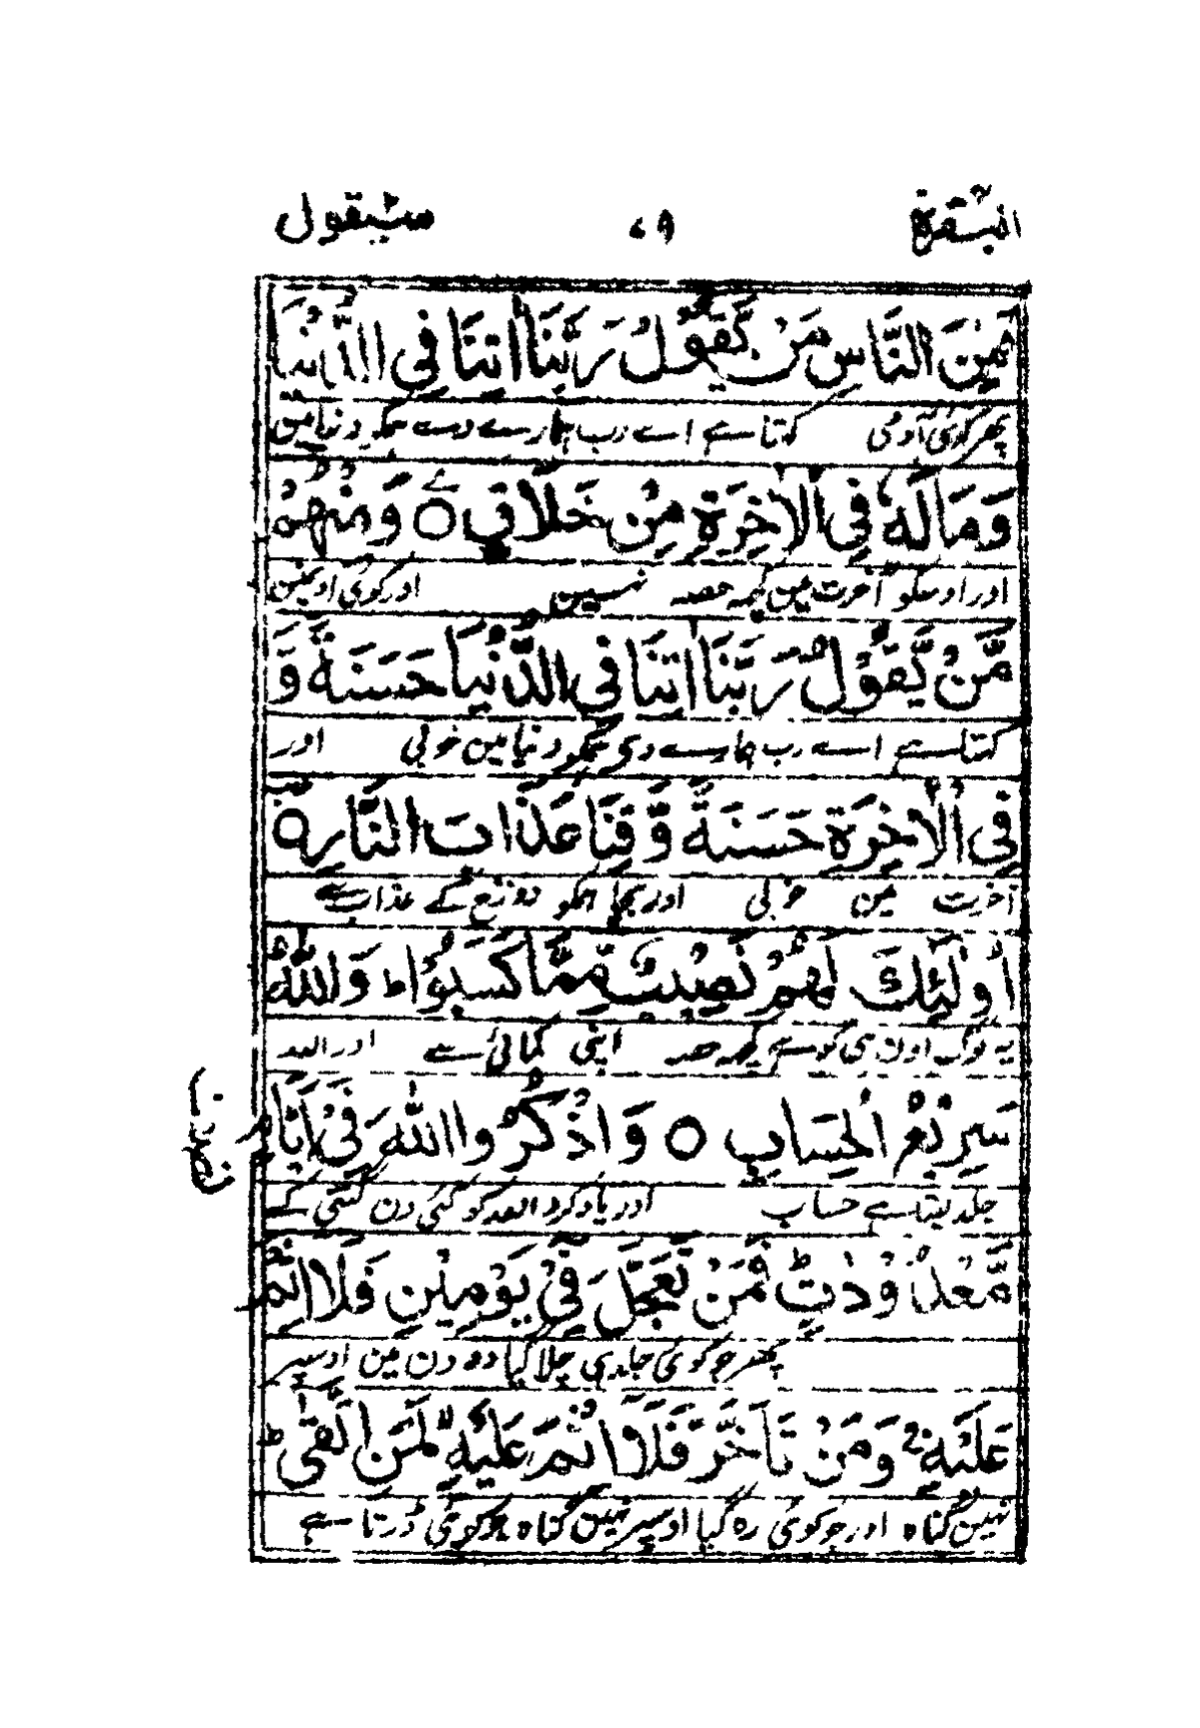 البقرة ٤٩ سيقول
فَمِنَ النَّاسِ مَنْ يَّقُوْلُ رَبَّنَا اٰتِنَا فِي الدُّنْيَا
پھر کوئی آدمی کہتا ہے اے رب ہمارے دے ہمکو دنیا مین
وَمَا لَهٗ فِي الْاٰخِرَةِ مِنْ خَلَاقٍ ○ وَمِنْهُمْ
اور اوسکو آخرت مین کچھ حصہ نہین اور کوئی اونمین
مَّنْ يَّقُوْلُ رَبَّنَا اٰتِنَا فِي الدُّنْيَا حَسَنَةً وَّ
کہتا ہے اے رب ہمارے دی ہمکو دنیا مین خوبی اور
فِي الْاٰخِرَةِ حَسَنَةً وَّقِنَا عَذَابَ النَّارِ ○
آخرت مین خوبی اور بچا ہمکو دوزخ کے عذاب سے
اُولٰٓئِكَ لَهُمْ نَصِيْبٌ مِّمَّا كَسَبُوْا ط وَاللّٰهُ
یہ لوگ اون ہی کو ہے کچھ حصہ اپنی کمائی سے اور الله
سَرِيْعُ الْحِسَابِ ○ وَاذْكُرُوا اللّٰهَ فِيْٓ اَيَّامٍ
جلد لیتا ہے حساب اور یاد کرو الله کو کئی دن گنتی کے
مَّعْدُوْدٰتٍ ط فَمَنْ تَعَجَّلَ فِيْ يَوْمَيْنِ فَلَآ اِثْمَ
پھر جو کوئی جلدی چلا گیا دو دن مین اوسپر
عَلَيْهِ ج وَمَنْ تَاَخَّرَ فَلَآ اِثْمَ عَلَيْهِ لا لِمَنِ اتَّقٰى ط
نہین گناہ اور جو کوئی رہ گیا اوسپر نہین گناہ جو کوئی ڈرتا ہے